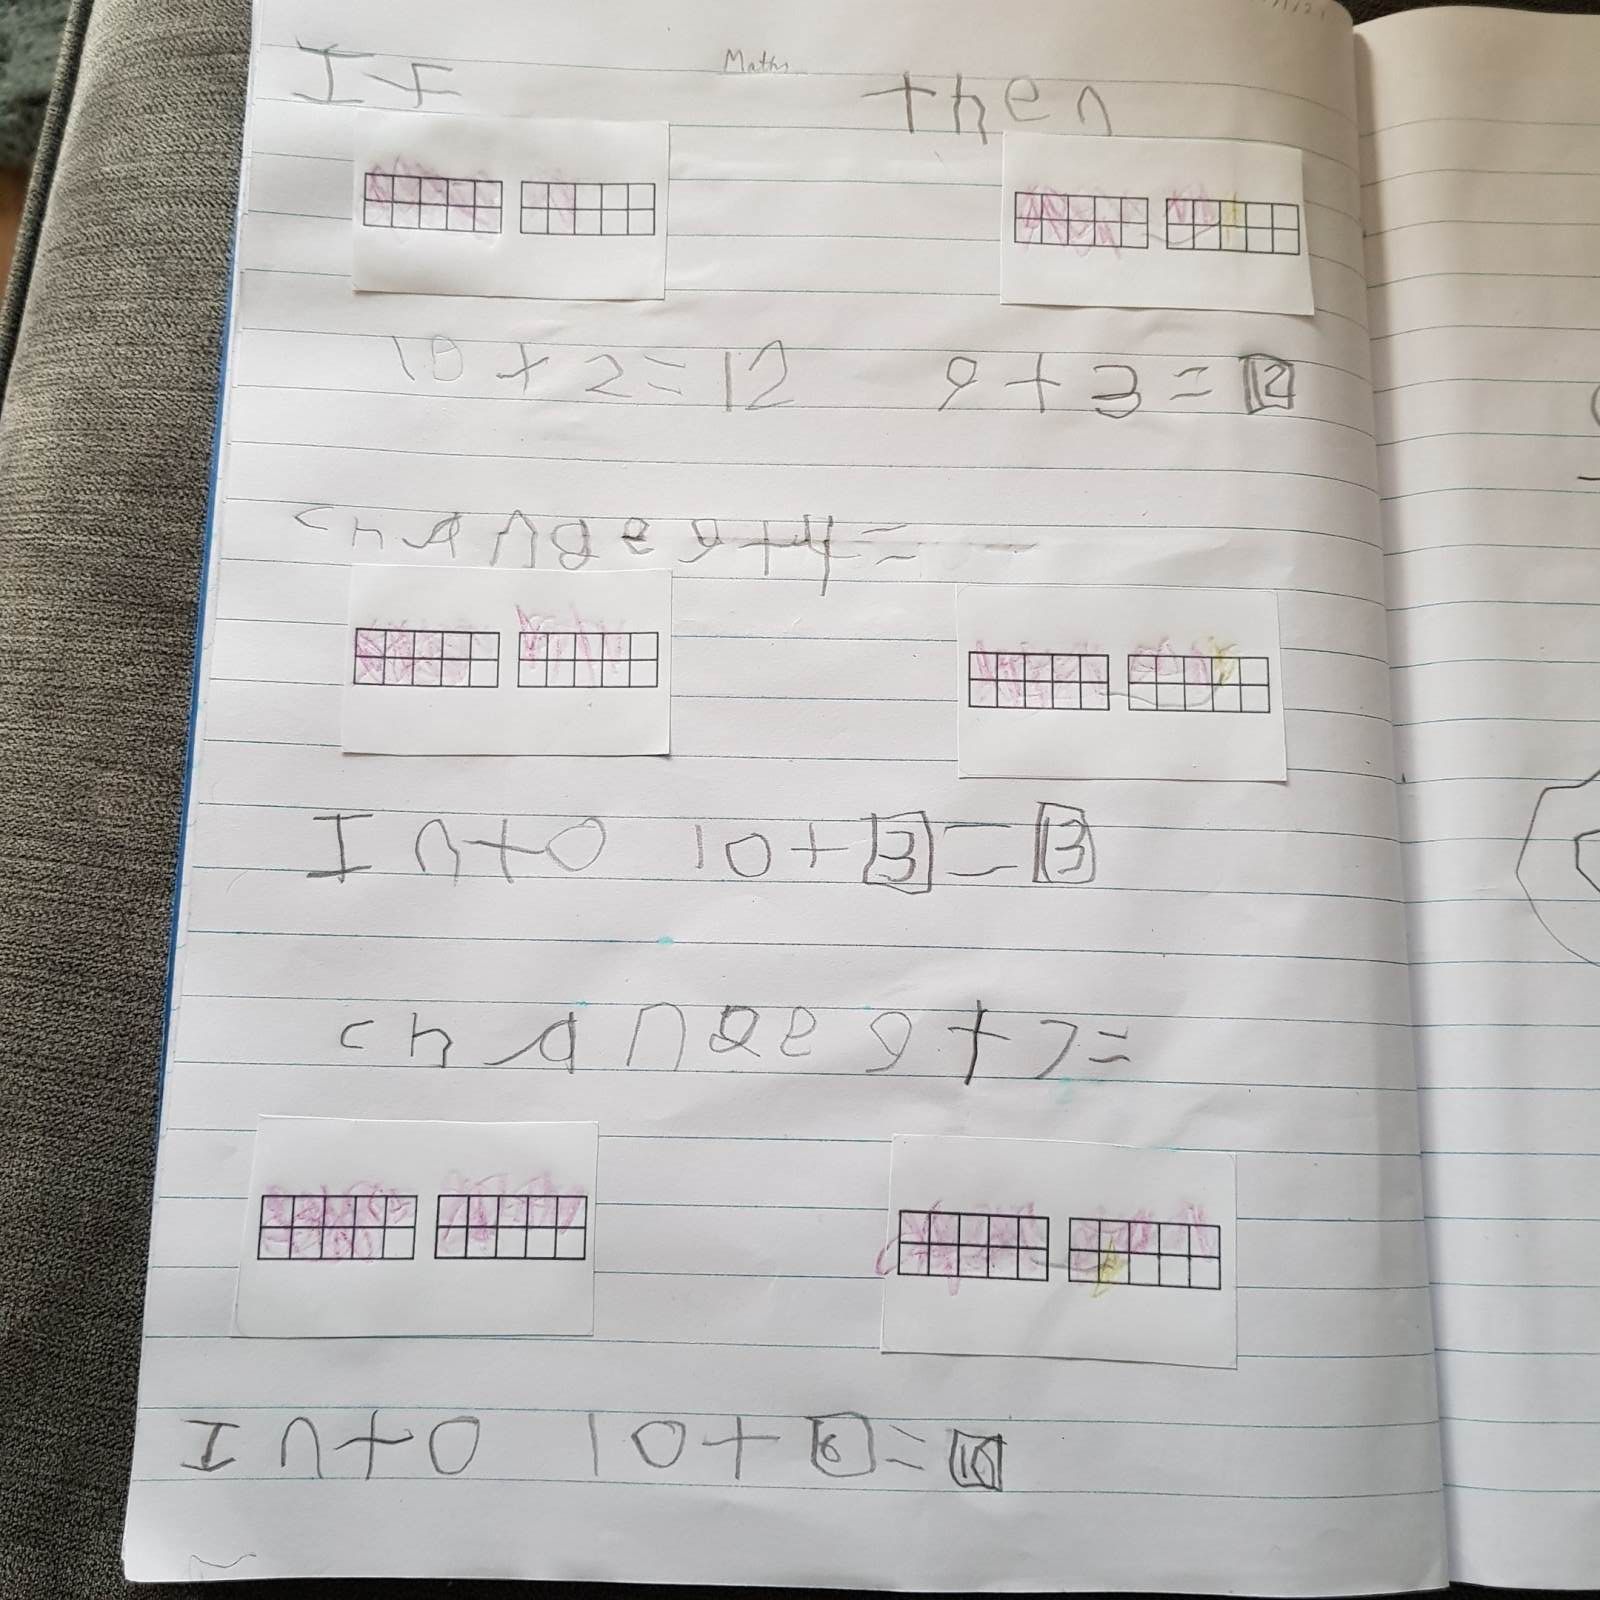 Maths
If then
10 + 2 = 12 9 + 3 = 12
change 9 + 4 =
Into 10 + 3 = 13
change 9 + 7 =
Into 10 + 6 = 16